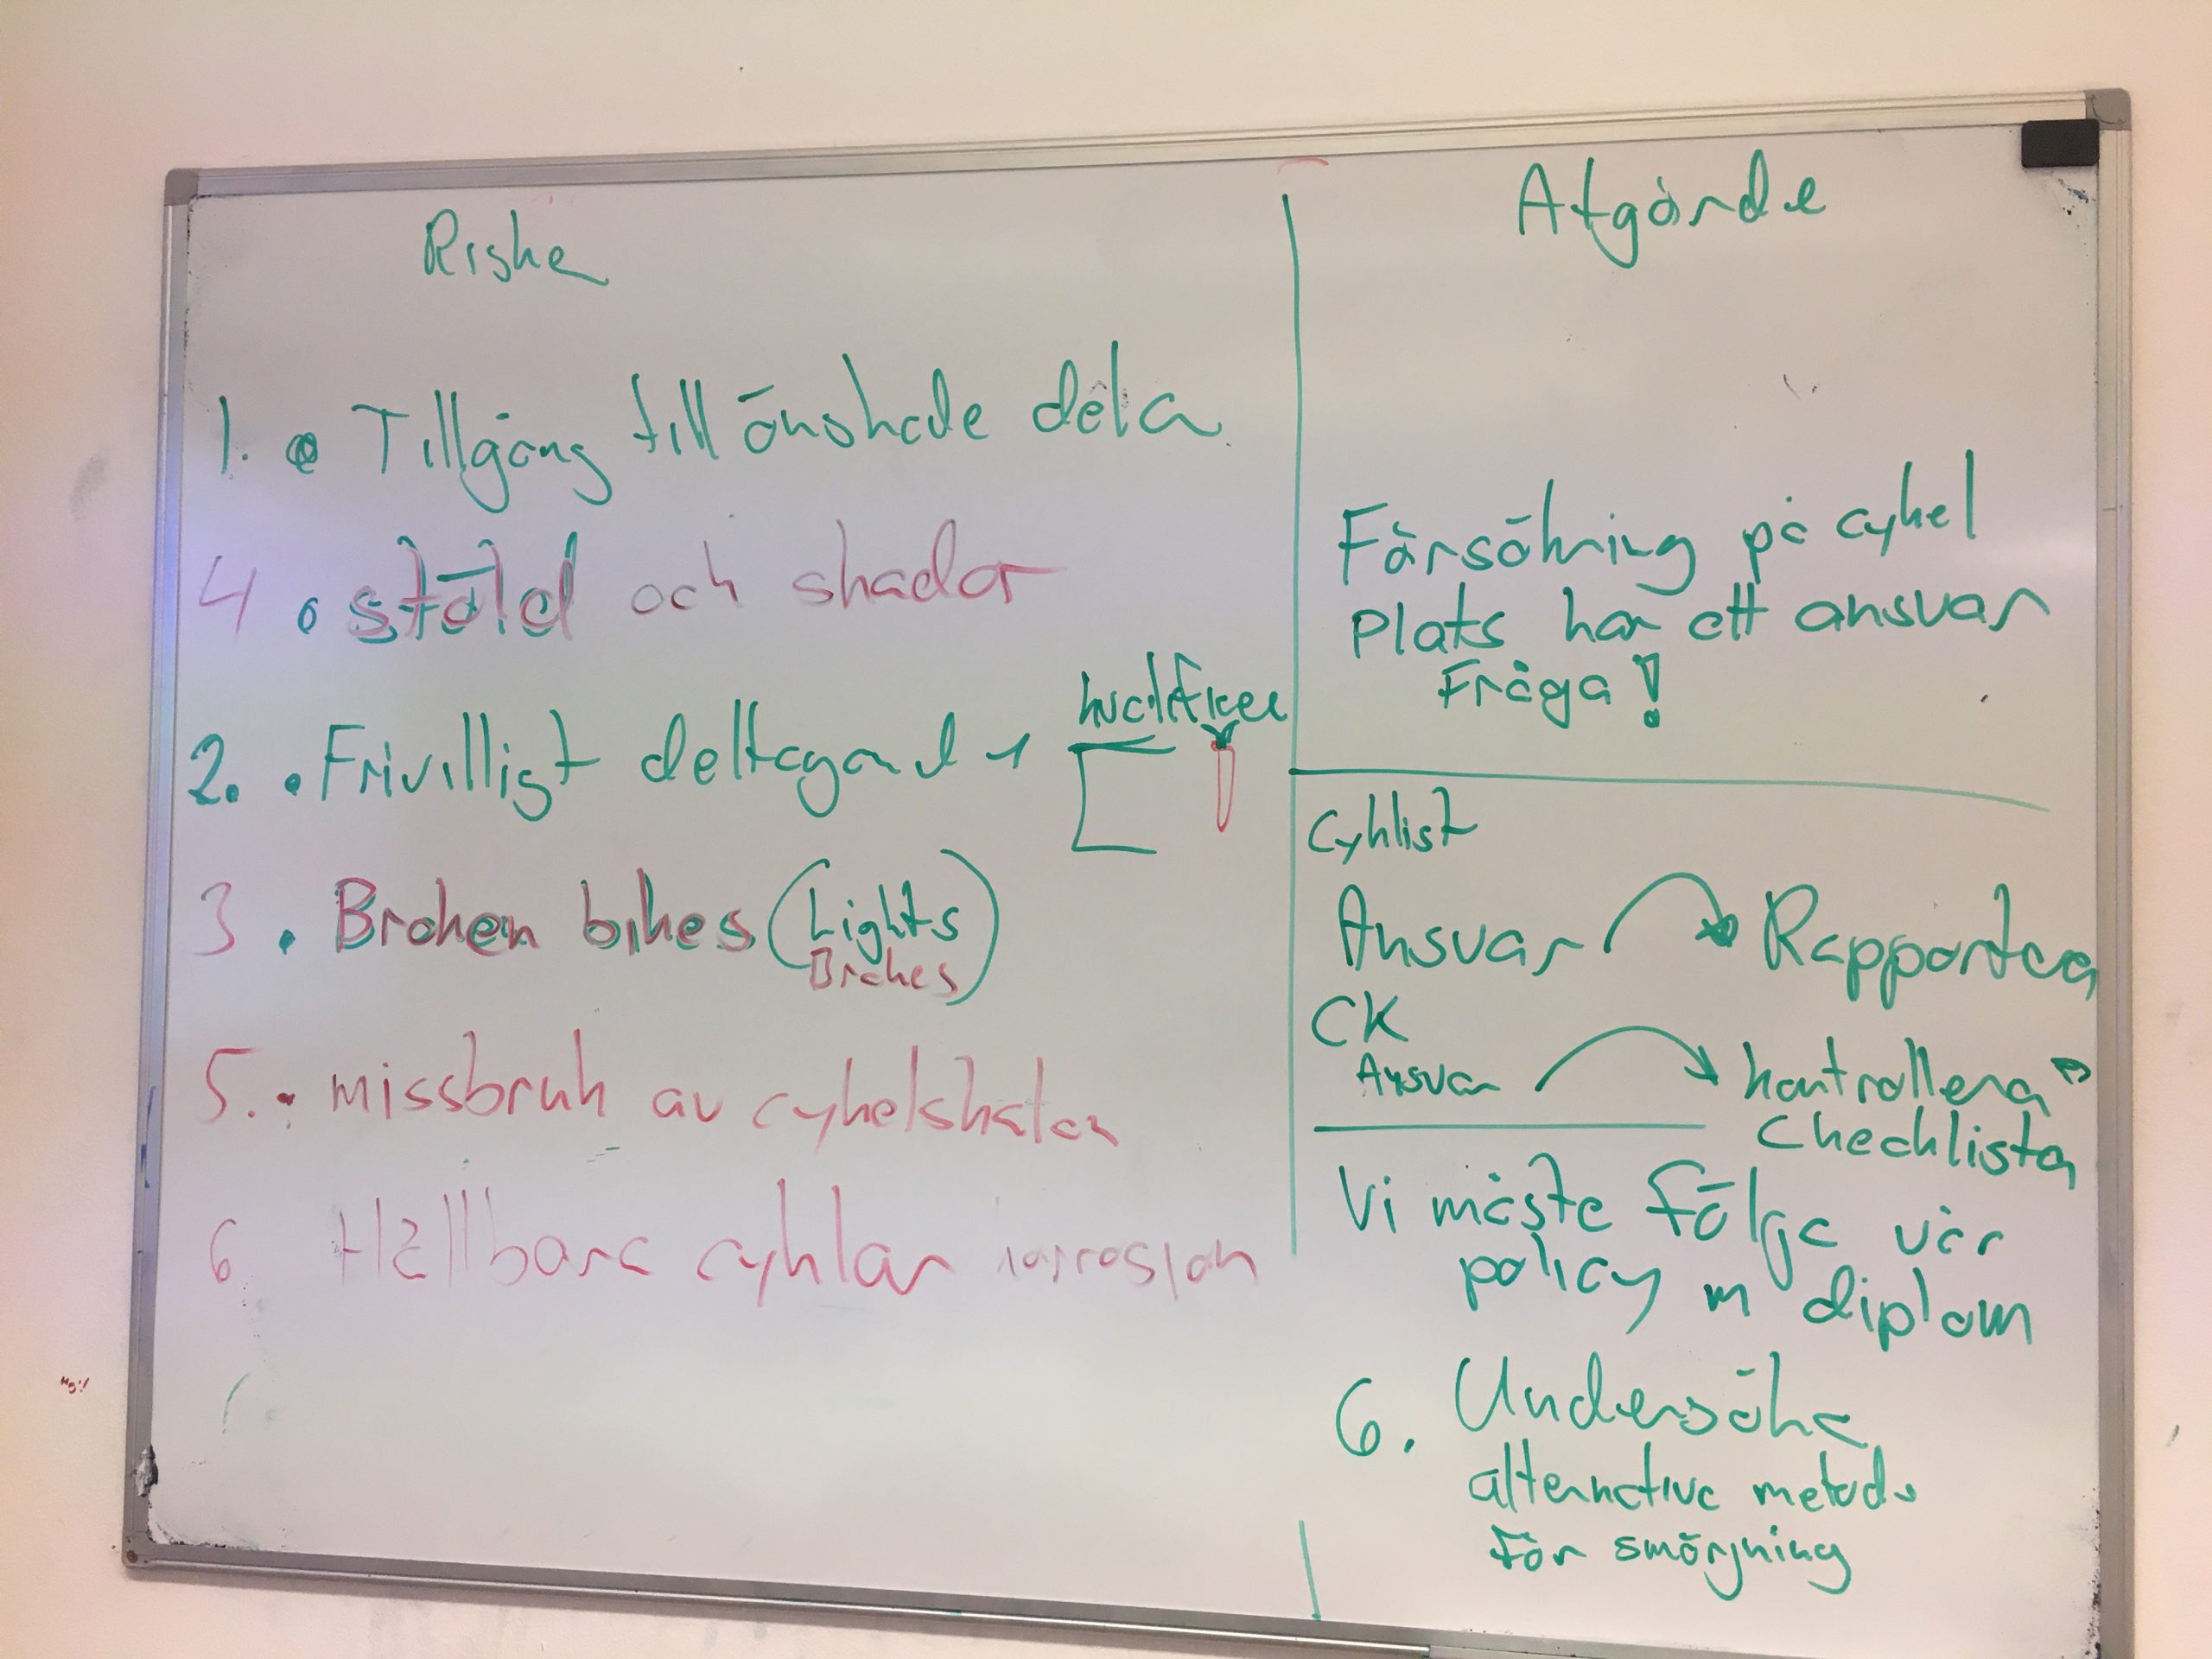 Riske
1. Tillgång till önskade dela
4. stöld och skador
2. Frivilligt deltagand
3. Broken bikes (Lights
Brakes)
5. missbruk av cykelskalan
6 Hållbara cyklar korrosion
Åtgärde
Försäkring på cykel
Plats har ett ansvar
Fråga!
Cyklist
Ansvar Rapportea
CK
Ansvar kontrollera
Checklista
Vi måste följa vår
policy m diplom
6. Undersöka
alternativa metod
för smörjning